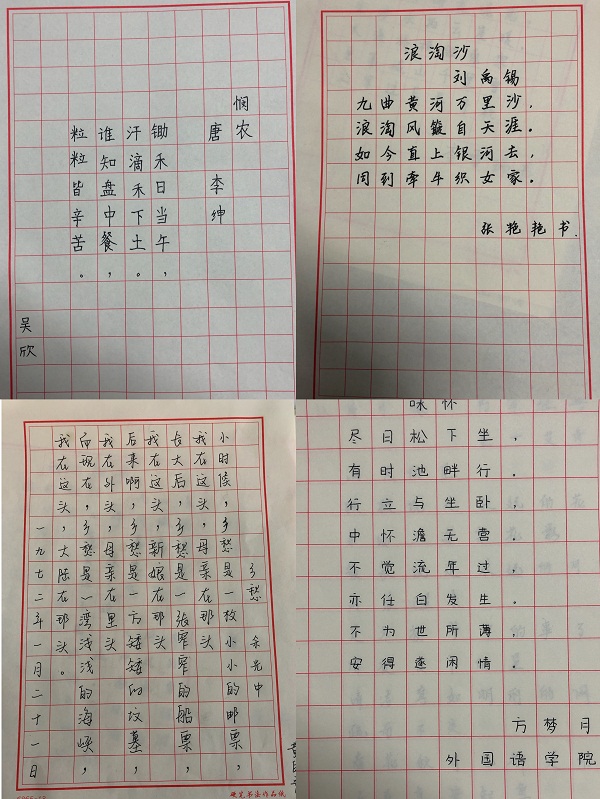 悯农
唐 李绅
锄禾日当午，
汗滴禾下土。
谁知盘中餐，
粒粒皆辛苦。
吴欣
浪淘沙
刘禹锡
九曲黄河万里沙，
浪淘风簸自天涯。
如今直上银河去，
同到牵牛织女家。
张艳艳书.
乡愁 余光中
小时候，乡愁是一枚小小的邮票，
我在这头，母亲在那头
长大后，乡愁是一张窄窄的船票，
我在这头，新娘在那头
后来啊，乡愁是一方矮矮的坟墓，
我在外头，母亲在里头
而现在，乡愁是一湾浅浅的海峡，
我在这头，大陆在那头。
一九七二年一月二十一日
硬笔书法作品纸
咏怀
尽日松下坐，
有时池畔行。
行立与坐卧，
中怀澹无营。
不觉流年过，
亦任白发生。
不为世所薄，
安得遂闲情。
方梦月
外国语学院